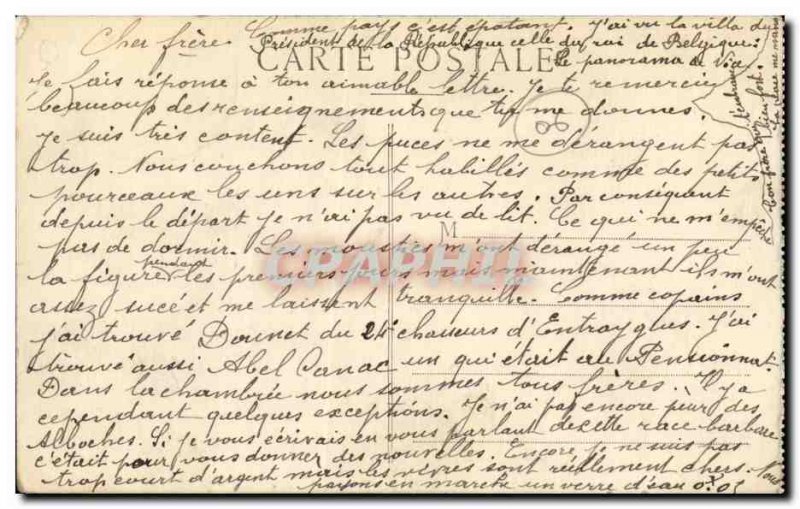 Cher frère
CARTE POSTALE
Je fais réponse à ton aimable lettre. Je te remercie
beaucoup des renseignements que tu me donnes.
Je suis très content. Les puces ne me dérangent pas
trop. Nous couchons tout habillés comme des petits
pourceaux les uns sur les autres. Par conséquent
depuis le départ je n'ai pas vu de lit. Ce qui ne m'empêche
M
pas de dormir. Les moustics m'ont dérangé un peu
la figure pendant les premiers jours mais maintenant ils m'ont
CPAPHIL
assez sucé et me laissent tranquille. Comme copains
j'ai trouvé Dounet du 24e chasseurs d'Entraygues. J'ai
trouvé aussi Abel Canac un qui était au Pensionnat.
Dans la chambrée nous sommes tous frères. Il y a
cependant quelques exceptions. Je n'ai pas encore peur des
Alboches. Si je vous écrivais en vous parlant de cette race barbare
c'était pour vous donner des nouvelles. Encore je ne suis pas
trop court d'argent mais les vivres sont réellement chers. Nous
payons en marche un verre d'eau 0.05
Comme pays c'est épatant. J'ai vu la villa du
Président de la République celle du roi de Belgique.
le panorama de
Ton frère qui
bien fort.